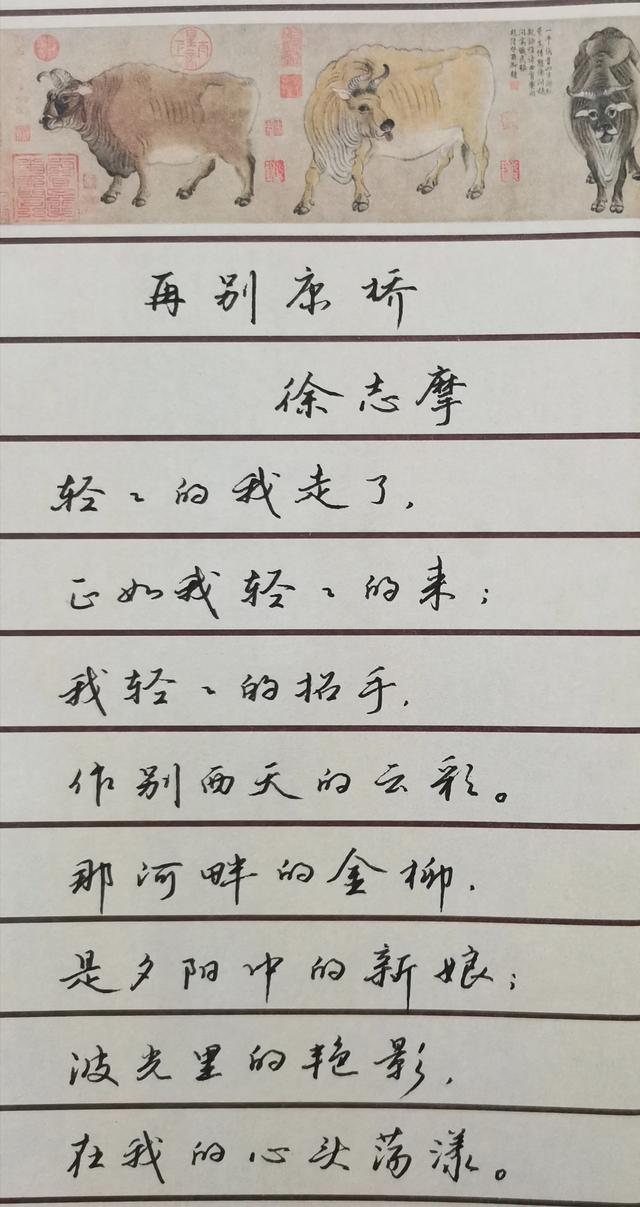 再别康桥
徐志摩
轻〻的我走了，
正如我轻〻的来；
我轻〻的招手，
作别西天的云彩。
那河畔的金柳，
是夕阳中的新娘；
波光里的艳影，
在我的心头荡漾。